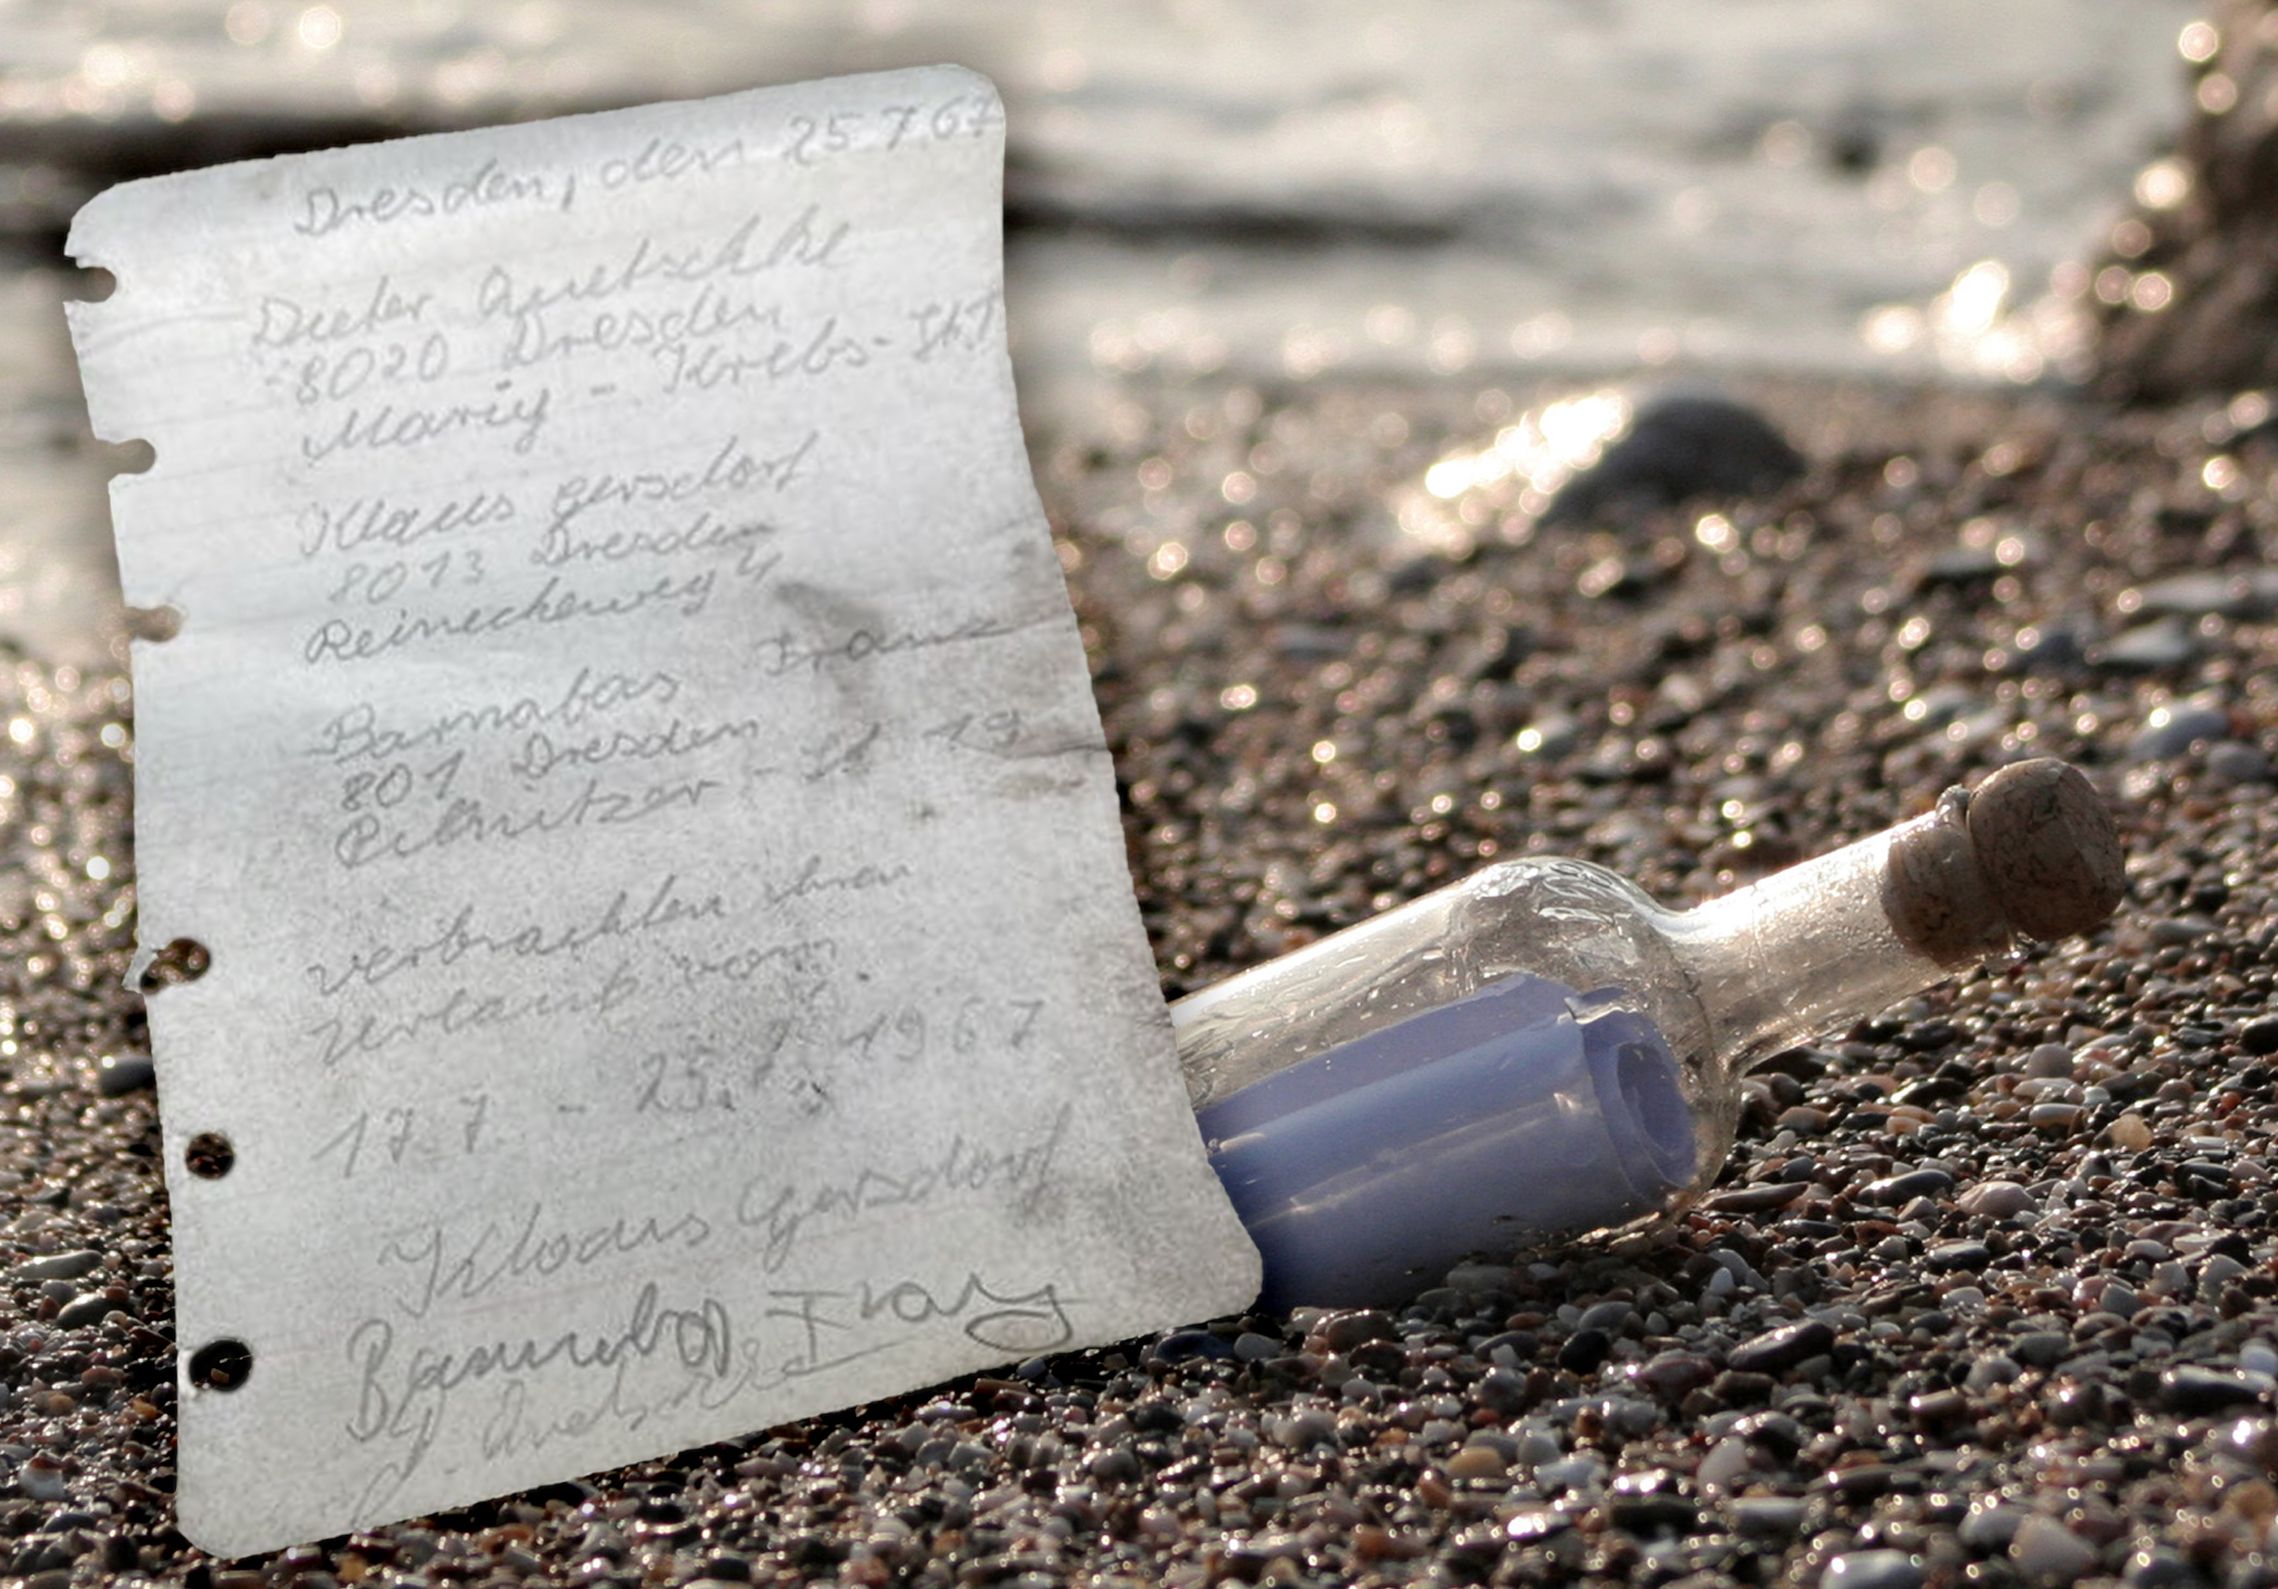 Dresden, den 25 7 67
Dieter Quetschke
8020 Dresden
Mariy - Krebs - Str
Klaus Gersdorf
8013 Dresden
Reineckeweg 4
Barnabas Franz
801 Dresden
Pilnitzer - St 19
verbrachten ihren
Urlaub vom
17.7. - 25.7. 1967
Klaus Gersdorf
Barnabas Franz